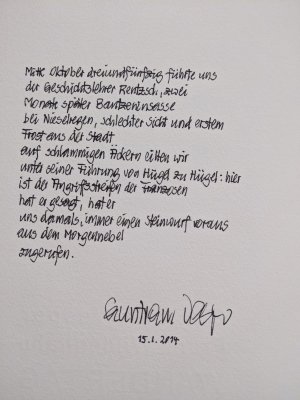 Mitte Oktober dreiundfünfzig führte uns
der Geschichtslehrer Rentzsch, zwei
Monate später Bautzeninsasse
bei Nieselregen, schlechter Sicht und erstem
Frost aus der Stadt
auf schlammigen Äckern eilten wir
unter seiner Führung von Hügel zu Hügel: hier
ist der Angriffsstreifen der Franzosen
hat er gesagt, hat er
uns damals, immer einen Steinwurf voraus
aus dem Morgennebel
zugerufen.
15.1.2014